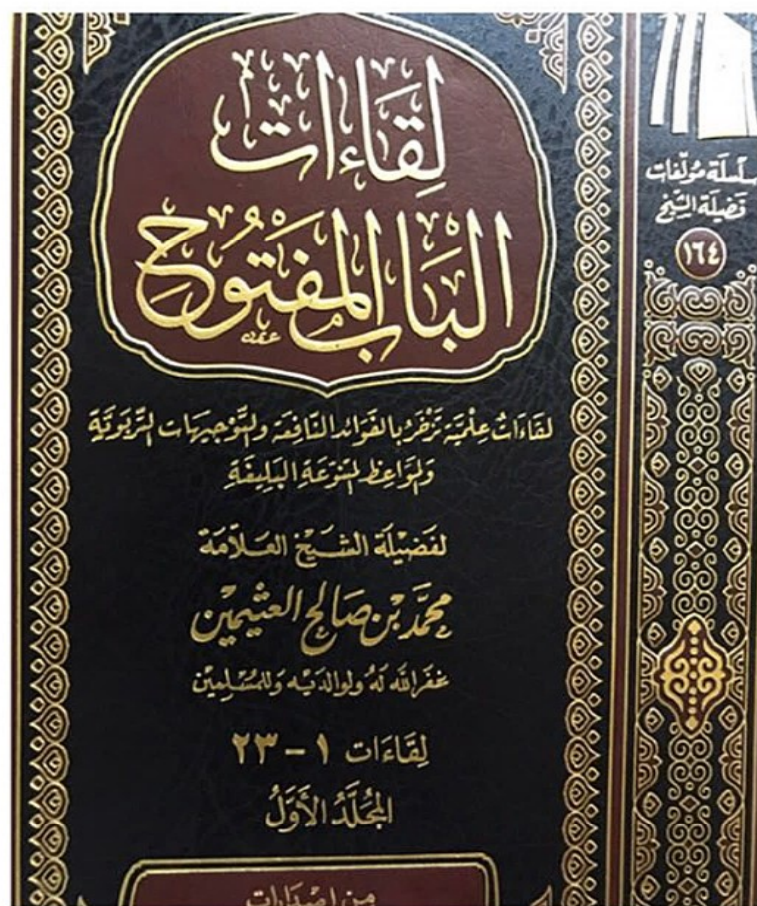 لِقَاءَات
البَابِ المَفْتُوحِ
لقَاءَاتٌ عِلْمِيَّة تَزْخَرُ بالفَوائد النَّافِعَة والتَّوْجيهَات التَّربَويَّة
والمَوَاعِظ المتنوّعَةِ البَلِيغَةِ
لفَضيْلَة الشَّيْخ العَلّامَة
محمَّد بْن صَالح العثيمين
غفَر اللَّه لَهُ ولوَالدَيْه وَللمُسْلِميْن
لِقَاءَات ١ - ٢٣
المُجَلَّدُ الأَوَّلُ
من إصدارات
سلسلَة مُؤلّفَات
فَضيلَة الشّيْخ
١٦٤